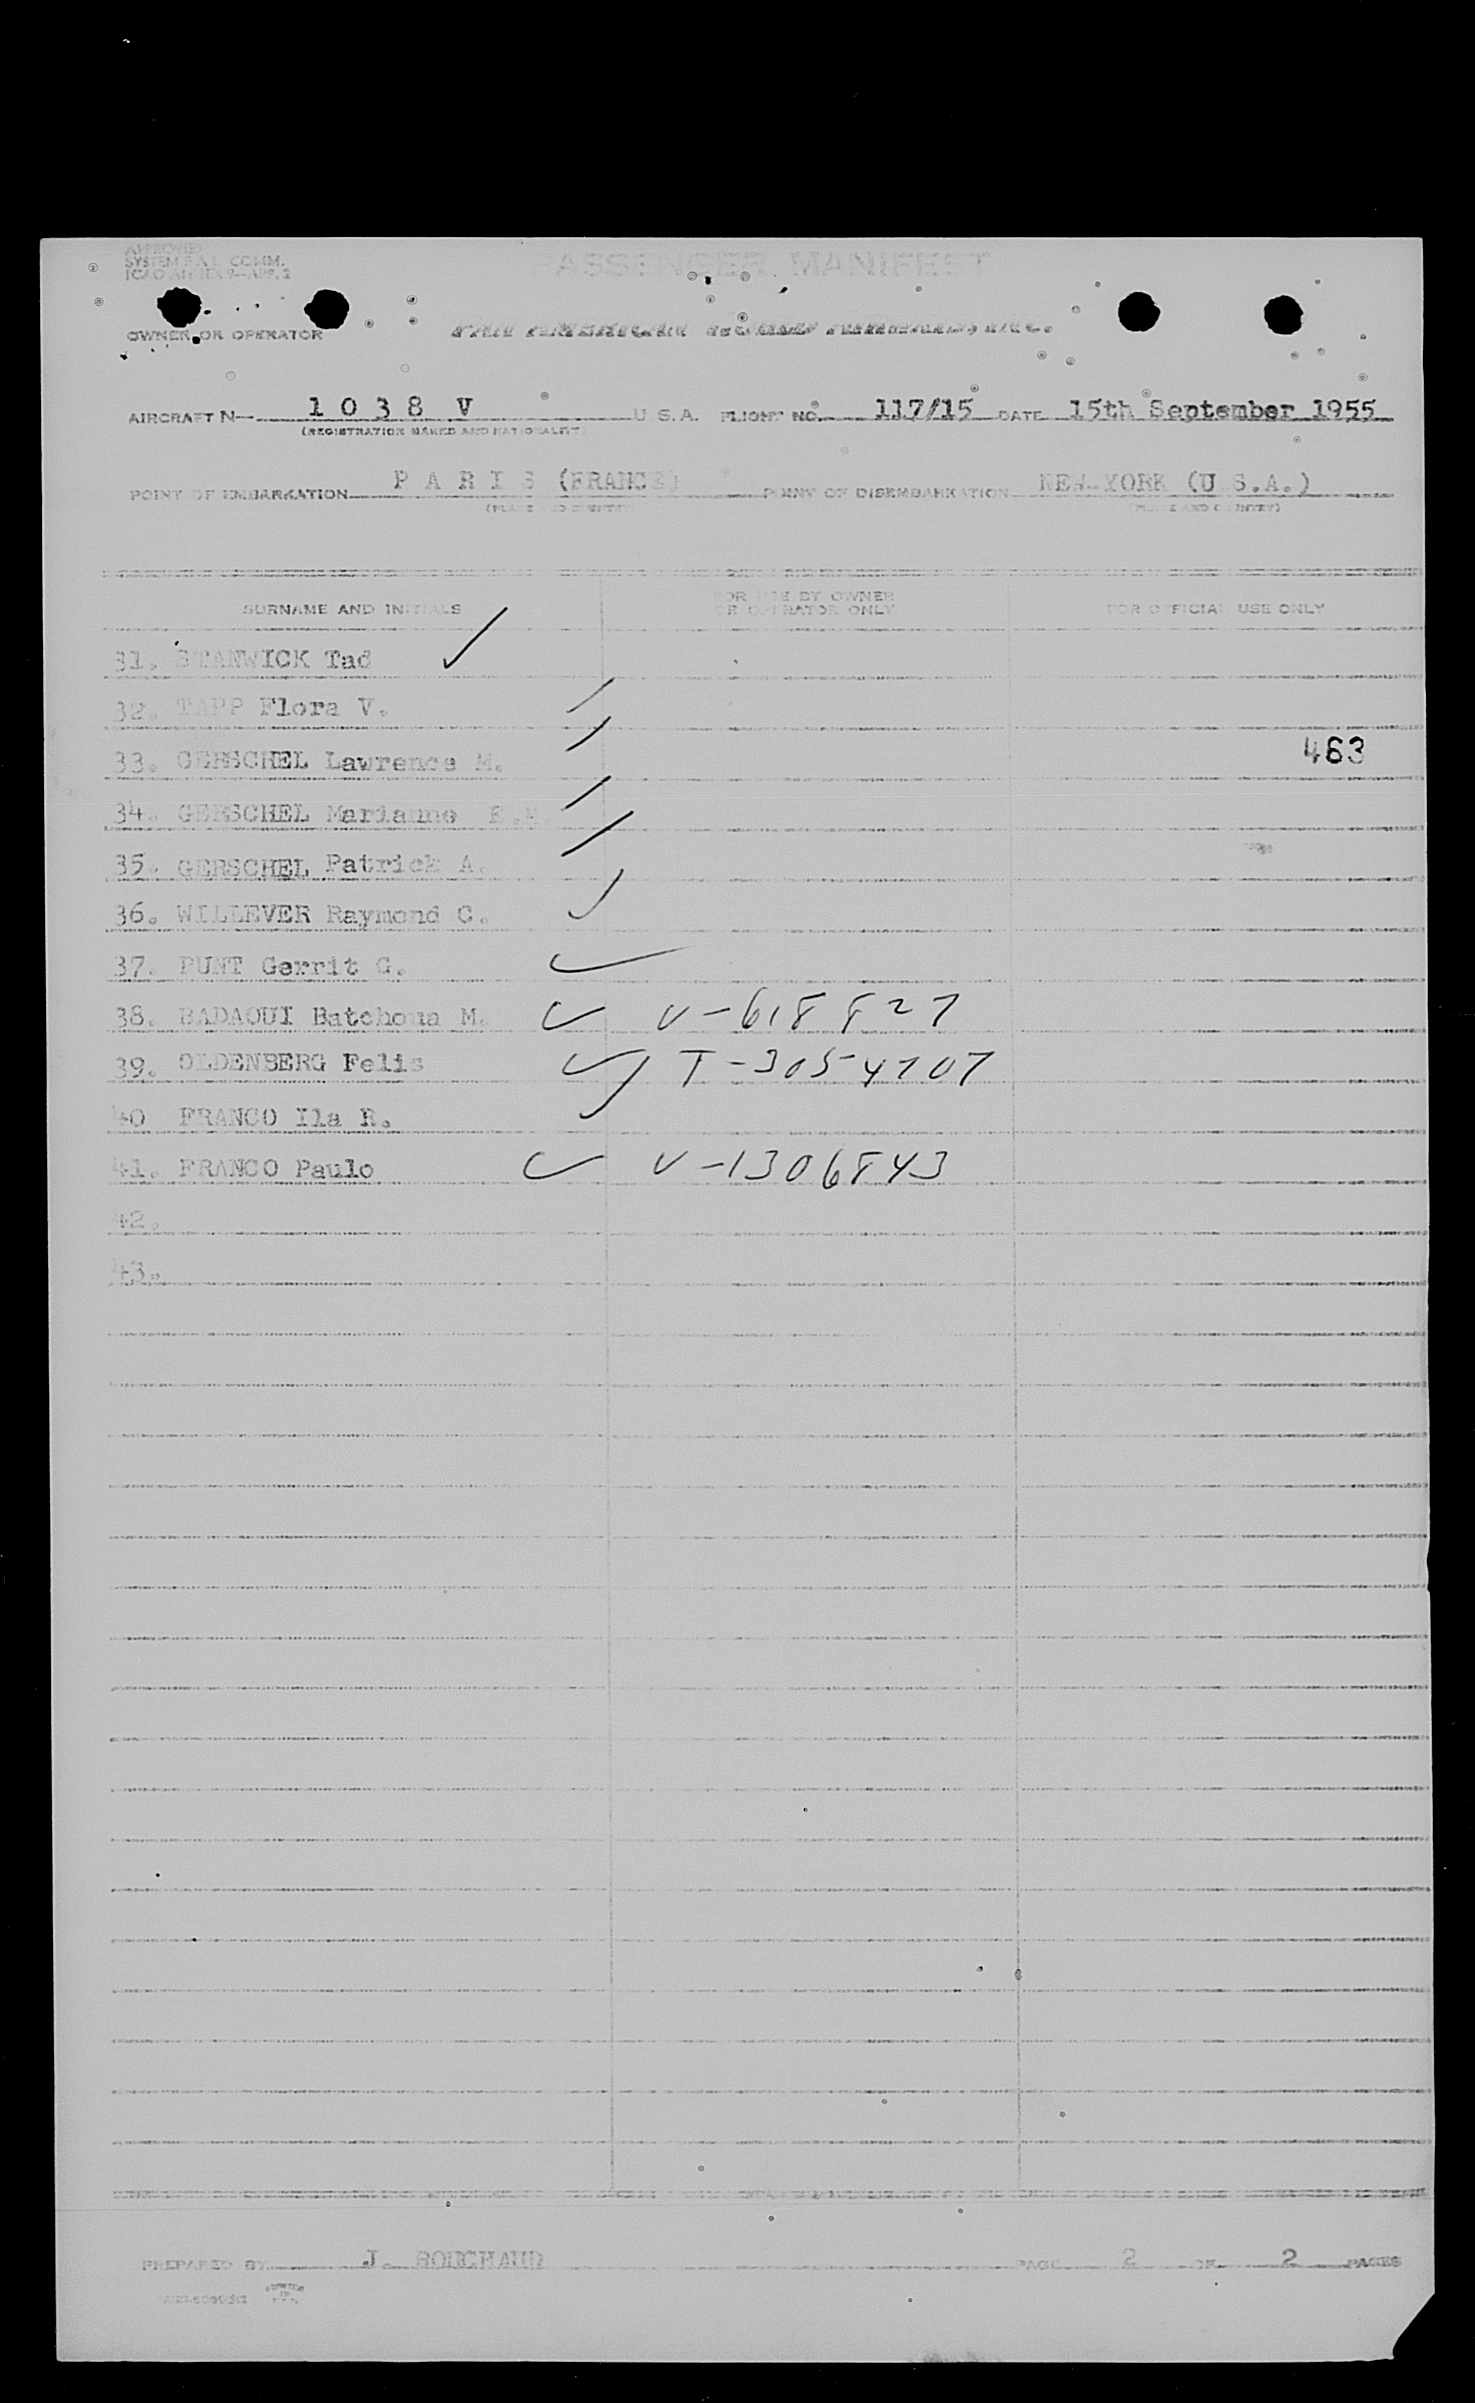 APPROVED
SYSTEM F.A.L. COMM.
ICAO ANNEX 9—APP. 2
PASSENGER MANIFEST
OWNER OR OPERATOR PAN AMERICAN WORLD AIRWAYS, INC.
AIRCRAFT N— 1 0 3 8 V U S.A. FLIGHT NO. 117/15 DATE 15th September 1955
(REGISTRATION MARKS AND NATIONALITY)
POINT OF EMBARKATION P A R I S (FRANCE) POINT OF DISEMBARKATION NEW-YORK (U S.A.)
(PLACE AND COUNTRY) (PLACE AND COUNTRY)
SURNAME AND INITIALS FOR USE BY OWNER OR OPERATOR ONLY FOR OFFICIAL USE ONLY
31. STANWICK Tad ✓
32. TAPP Flora V.
33. GERSCHEL Lawrence M. 463
34. GERSCHEL Marianne
35. GERSCHEL Patrick A.
36. WILLEVER Raymond C.
37. PUNT Gerrit G. ✓
38. BADAOUI Batchoua M. ✓ V-618827
39. OLDENBERG Felis ✓ T-3054707
40 FRANCO Ila R.
41. FRANCO Paulo ✓ V-1306843
42.
43.
PREPARED BY J. PAGE 2 OF 2 PAGES